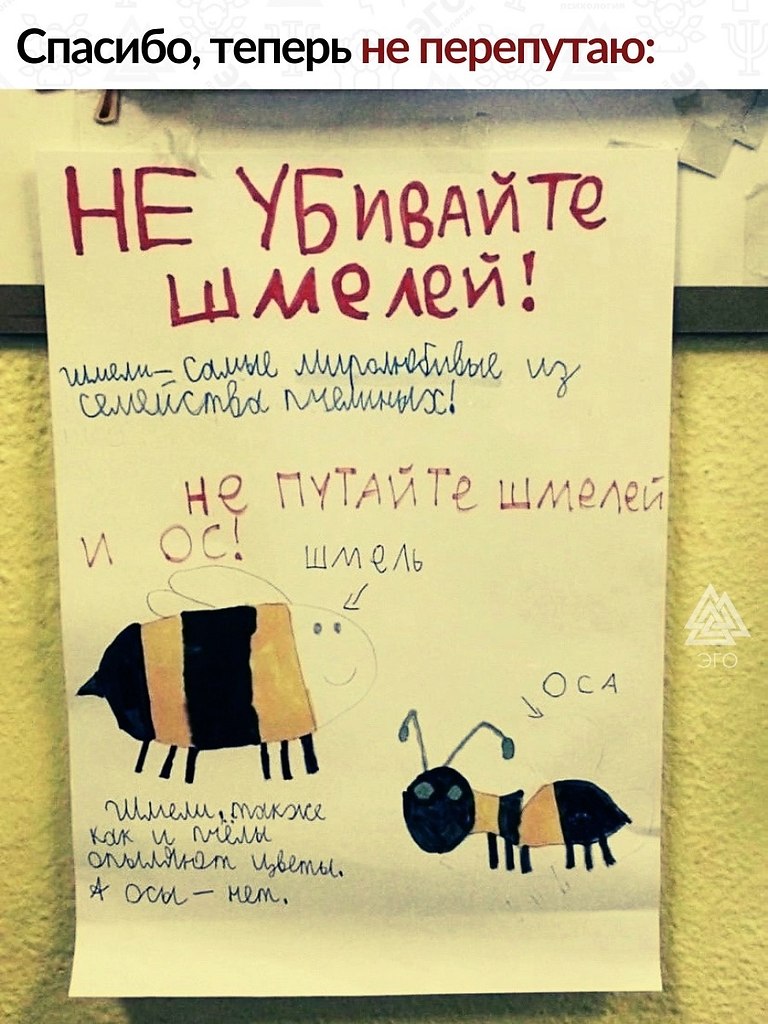 Спасибо, теперь не перепутаю:
НЕ УБИВАЙТЕ
ШМЕЛЕЙ!
шмели – самые миролюбивые из
семейства пчелиных!
НЕ ПУТАЙТЕ ШМЕЛЕЙ
И ОС!
ШМЕЛЬ
ЭГО
ОСА
Шмели, также
как и пчёлы
опыляют цветы.
А осы – нет.